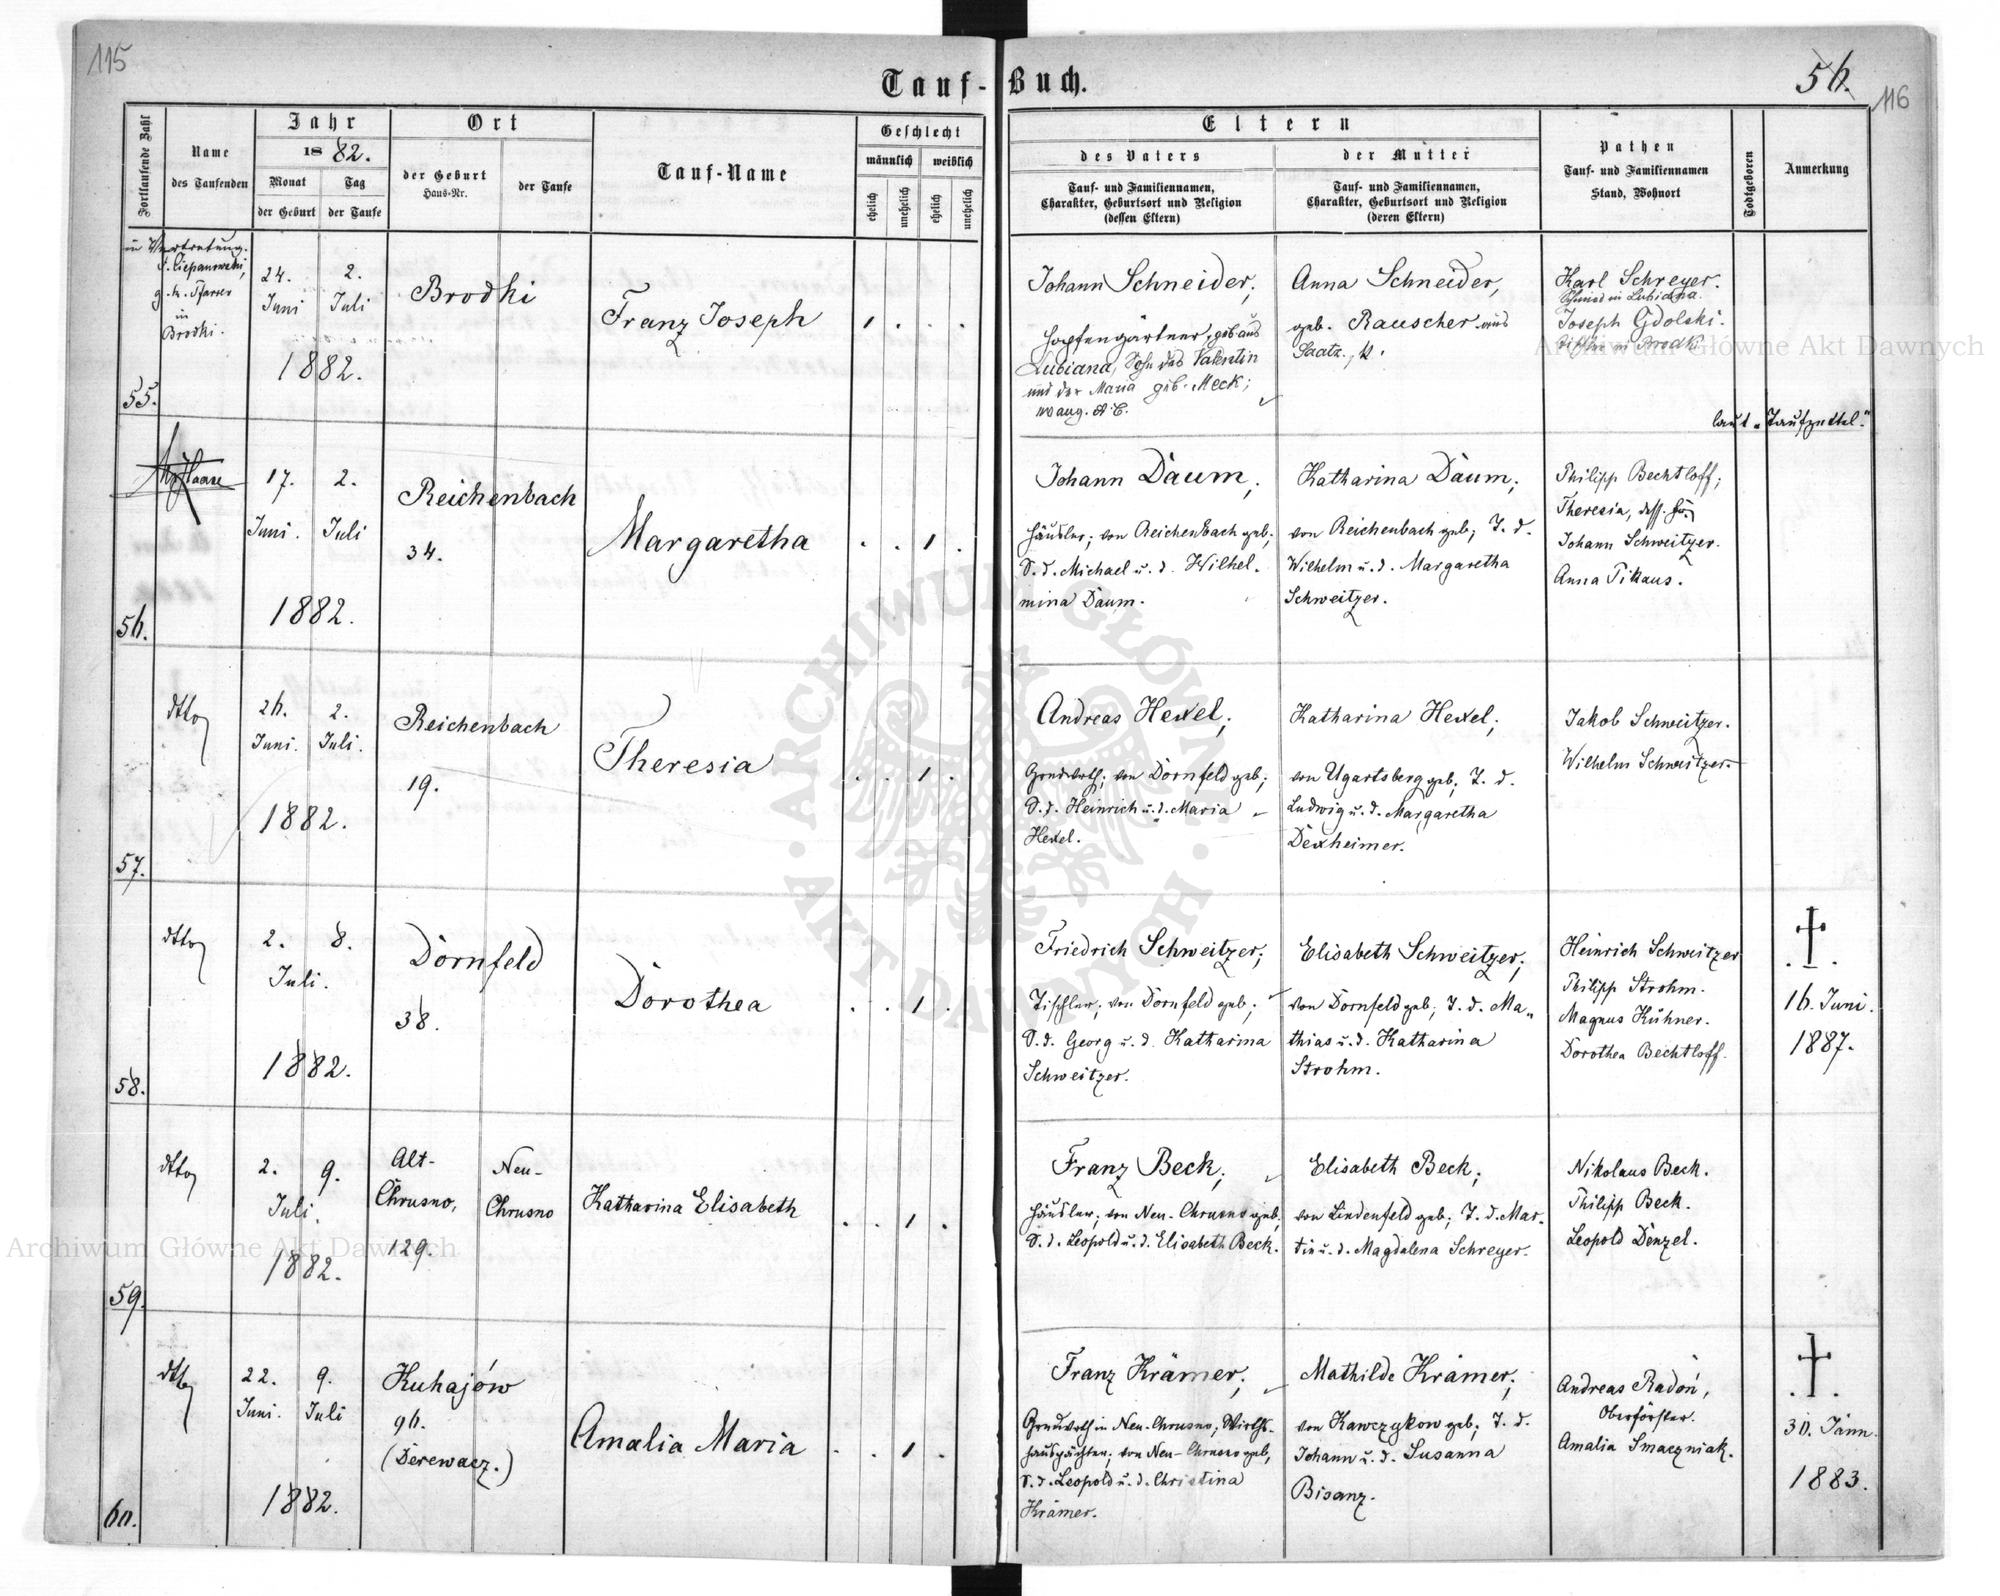 115
Tauf-Buch.
56.
116
Fortlaufende Zahl
Name
des Taufenden
Jahr
1882.
Monat
Tag
der Geburt
der Taufe
Ort
der Geburt
Haus-Nr.
der Taufe
Tauf-Name
Geschlecht
männlich
weiblich
ehelich
unehelich
ehelich
unehelich
Eltern
des Vaters
Tauf- und Familiennamen,
Charakter, Geburtsort und Religion
(dessen Eltern)
der Mutter
Tauf- und Familiennamen,
Charakter, Geburtsort und Religion
(deren Eltern)
Pathen
Tauf- und Familiennamen
Stand, Wohnort
Todtgeboren
Anmerkung
55.
in Vertretung.
g. k. Pfarrer
in
Brodki.
24.
Juni
2.
Juli
1882.
Brodki
Franz Joseph
1
Johann Schneider,
Hopfengärtner, geb. aus
Lubiana, Sohn des Valentin
und der Maria geb. Meck;
evang. A. C.
Anna Schneider,
geb. Rauscher aus
Saatz., k.
Karl Schreyer.
Schmied in Lubiana.
Joseph Gdolski.
Tischler in Brodki.
laut „Taufzettel."
56.
17.
Juni.
2.
Juli
1882.
Reichenbach
34.
Margaretha
1
Johann Daum,
Häusler; von Reichenbach geb;
S. d. Michael u. d. Wilhel.
mina Daum.
Katharina Daum;
von Reichenbach geb; T. d.
Wilhelm u. d. Margaretha
Schweitzer.
Philipp Bechtloff;
Theresia, dess. Fr.
Johann Schweitzer.
Anna Pikaus.
57.
dtto
26.
Juni.
2.
Juli.
1882.
Reichenbach
19.
Theresia
1
Andreas Hexel;
Grndwrth; von Dornfeld geb;
S. d. Heinrich u. d. Maria
Hexel.
Katharina Hexel;
von Ugartsberg geb; T. d.
Ludwig u. d. Margaretha
Dexheimer.
Jakob Schweitzer.
Wilhelm Schweitzer.
58.
dtto
2.
8.
Juli.
1882.
Dornfeld
38.
Dorothea
1
Friedrich Schweitzer;
Tischler; von Dornfeld geb;
S. d. Georg u. d. Katharina
Schweitzer.
Elisabeth Schweitzer;
von Dornfeld geb; T. d. Ma„
thias u. d. Katharina
Strohm.
Heinrich Schweitzer
Philipp Strohm.
Magnus Kühner.
Dorothea Bechtloff.
16. Juni.
1887.
59.
dtto
2.
9.
Juli.
1882.
Alt-
Chrusno,
129.
Neu-
Chrusno
Katharina Elisabeth
1
Franz Beck;
Häusler; von Neu-Chrusno geb;
S. d. Leopold u. d. Elisabeth Beck.
Elisabeth Beck;
von Lindenfeld geb; T. d. Mar-
tin u. d. Magdalena Schreyer.
Nikolaus Beck.
Philipp Beck.
Leopold Denzel.
60.
dtto
22.
Juni.
9.
Juli
1882.
Kuhajów
96.
(Derewacz.)
Amalia Maria
1
Franz Krämer;
Grndwrth in Neu-Chrusno; Wirths-
hauspächter; von Neu-Chrusno geb;
S. d. Leopold u. d. Christina
Krämer.
Mathilde Krämer;
von Kawczykow geb; T. d.
Johann u. d. Susanna
Bisanz.
Andreas Radoń,
Oberförster.
Amalia Smaczniak.
30. Jänn.
1883.
Archiwum Główne Akt Dawnych
Archiwum Główne Akt Dawnych
ARCHIWUM GŁÓWNE AKT DAWNYCH